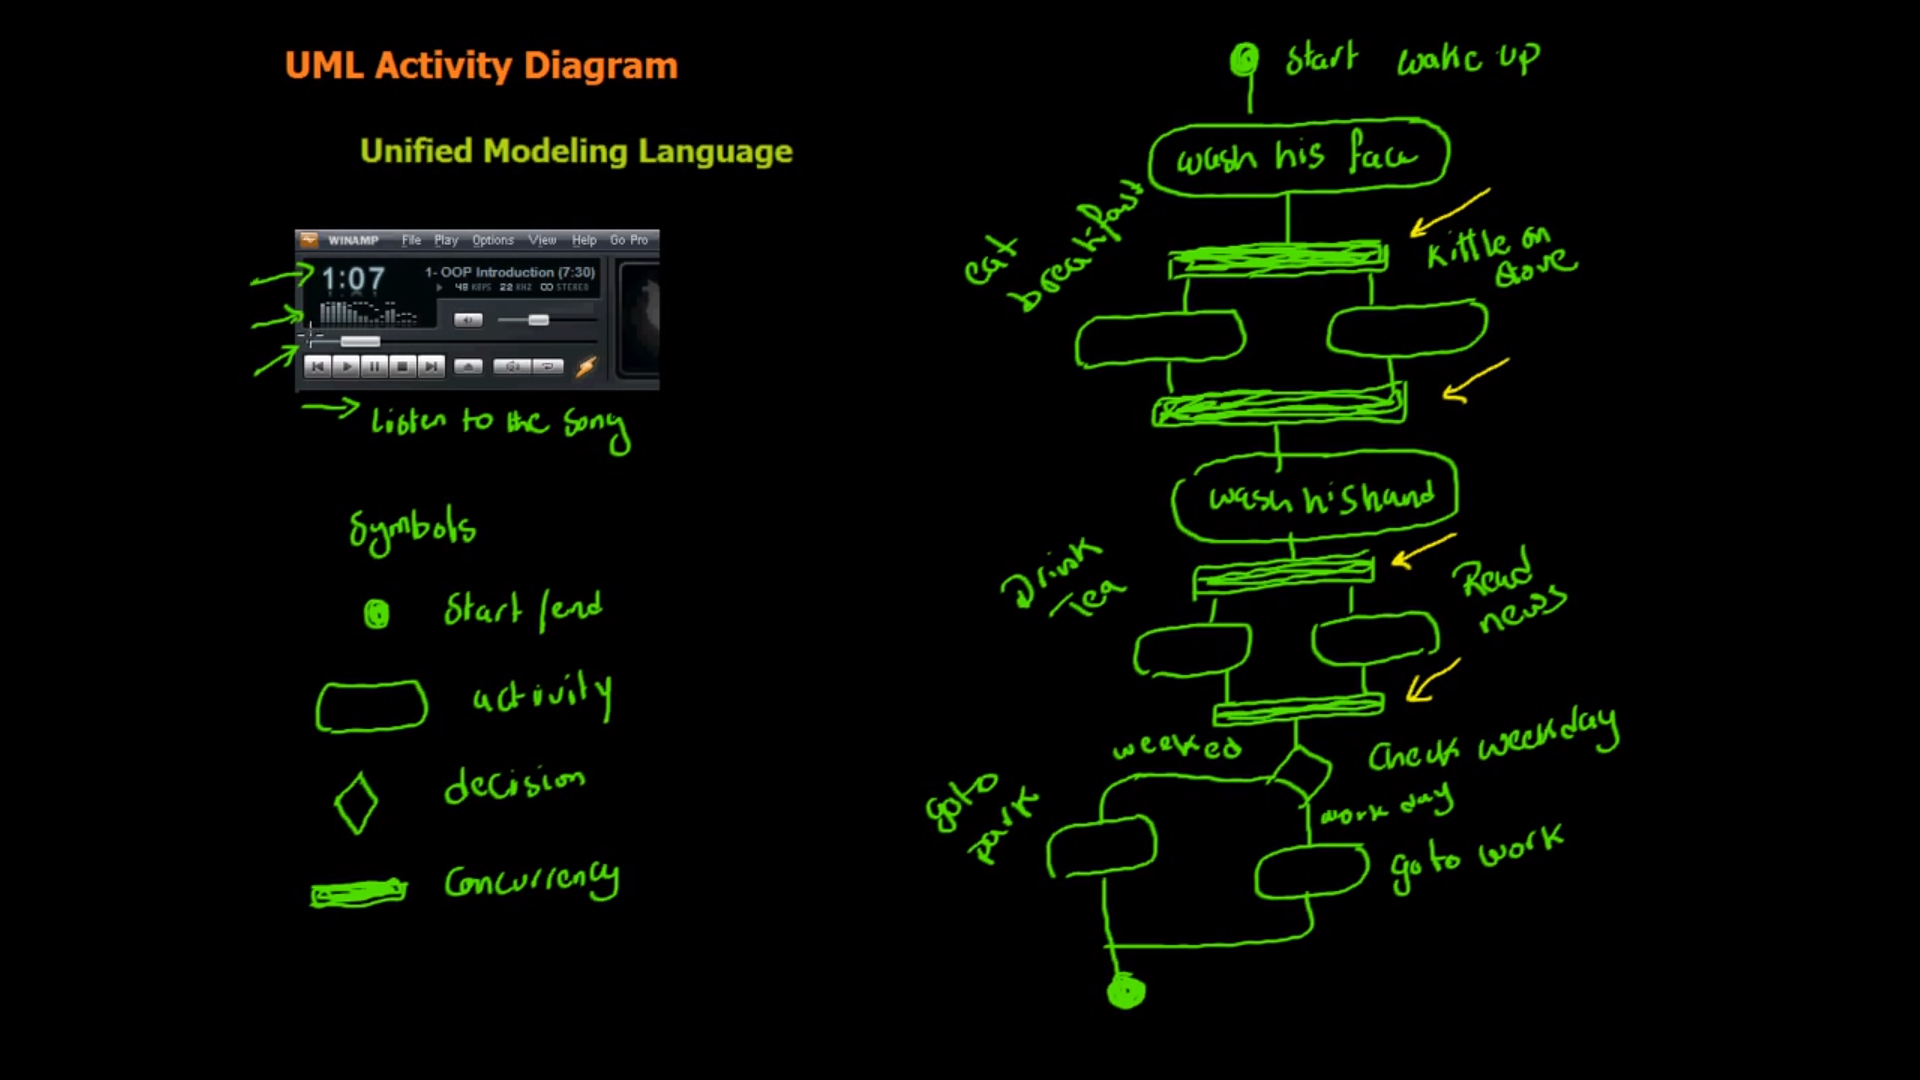 UML Activity Diagram
Unified Modeling Language
WINAMP File Play Options View Help Go Pro
1:07
1- OOP Introduction (7:30)
48 KBPS 22 KHZ STEREO
Listen to the Song
Symbols
Start/end
activity
decision
Concurrency
Start wake up
wash his face
eat
breakfast
Kittle on
stove
wash his hand
Drink
Tea
Read
news
weeked
Check weekday
work day
goto
park
goto work